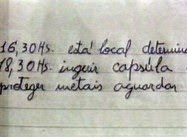 16,30Hs. está local determin
18,30Hs. ingerir capsula
proteger metais aguardar